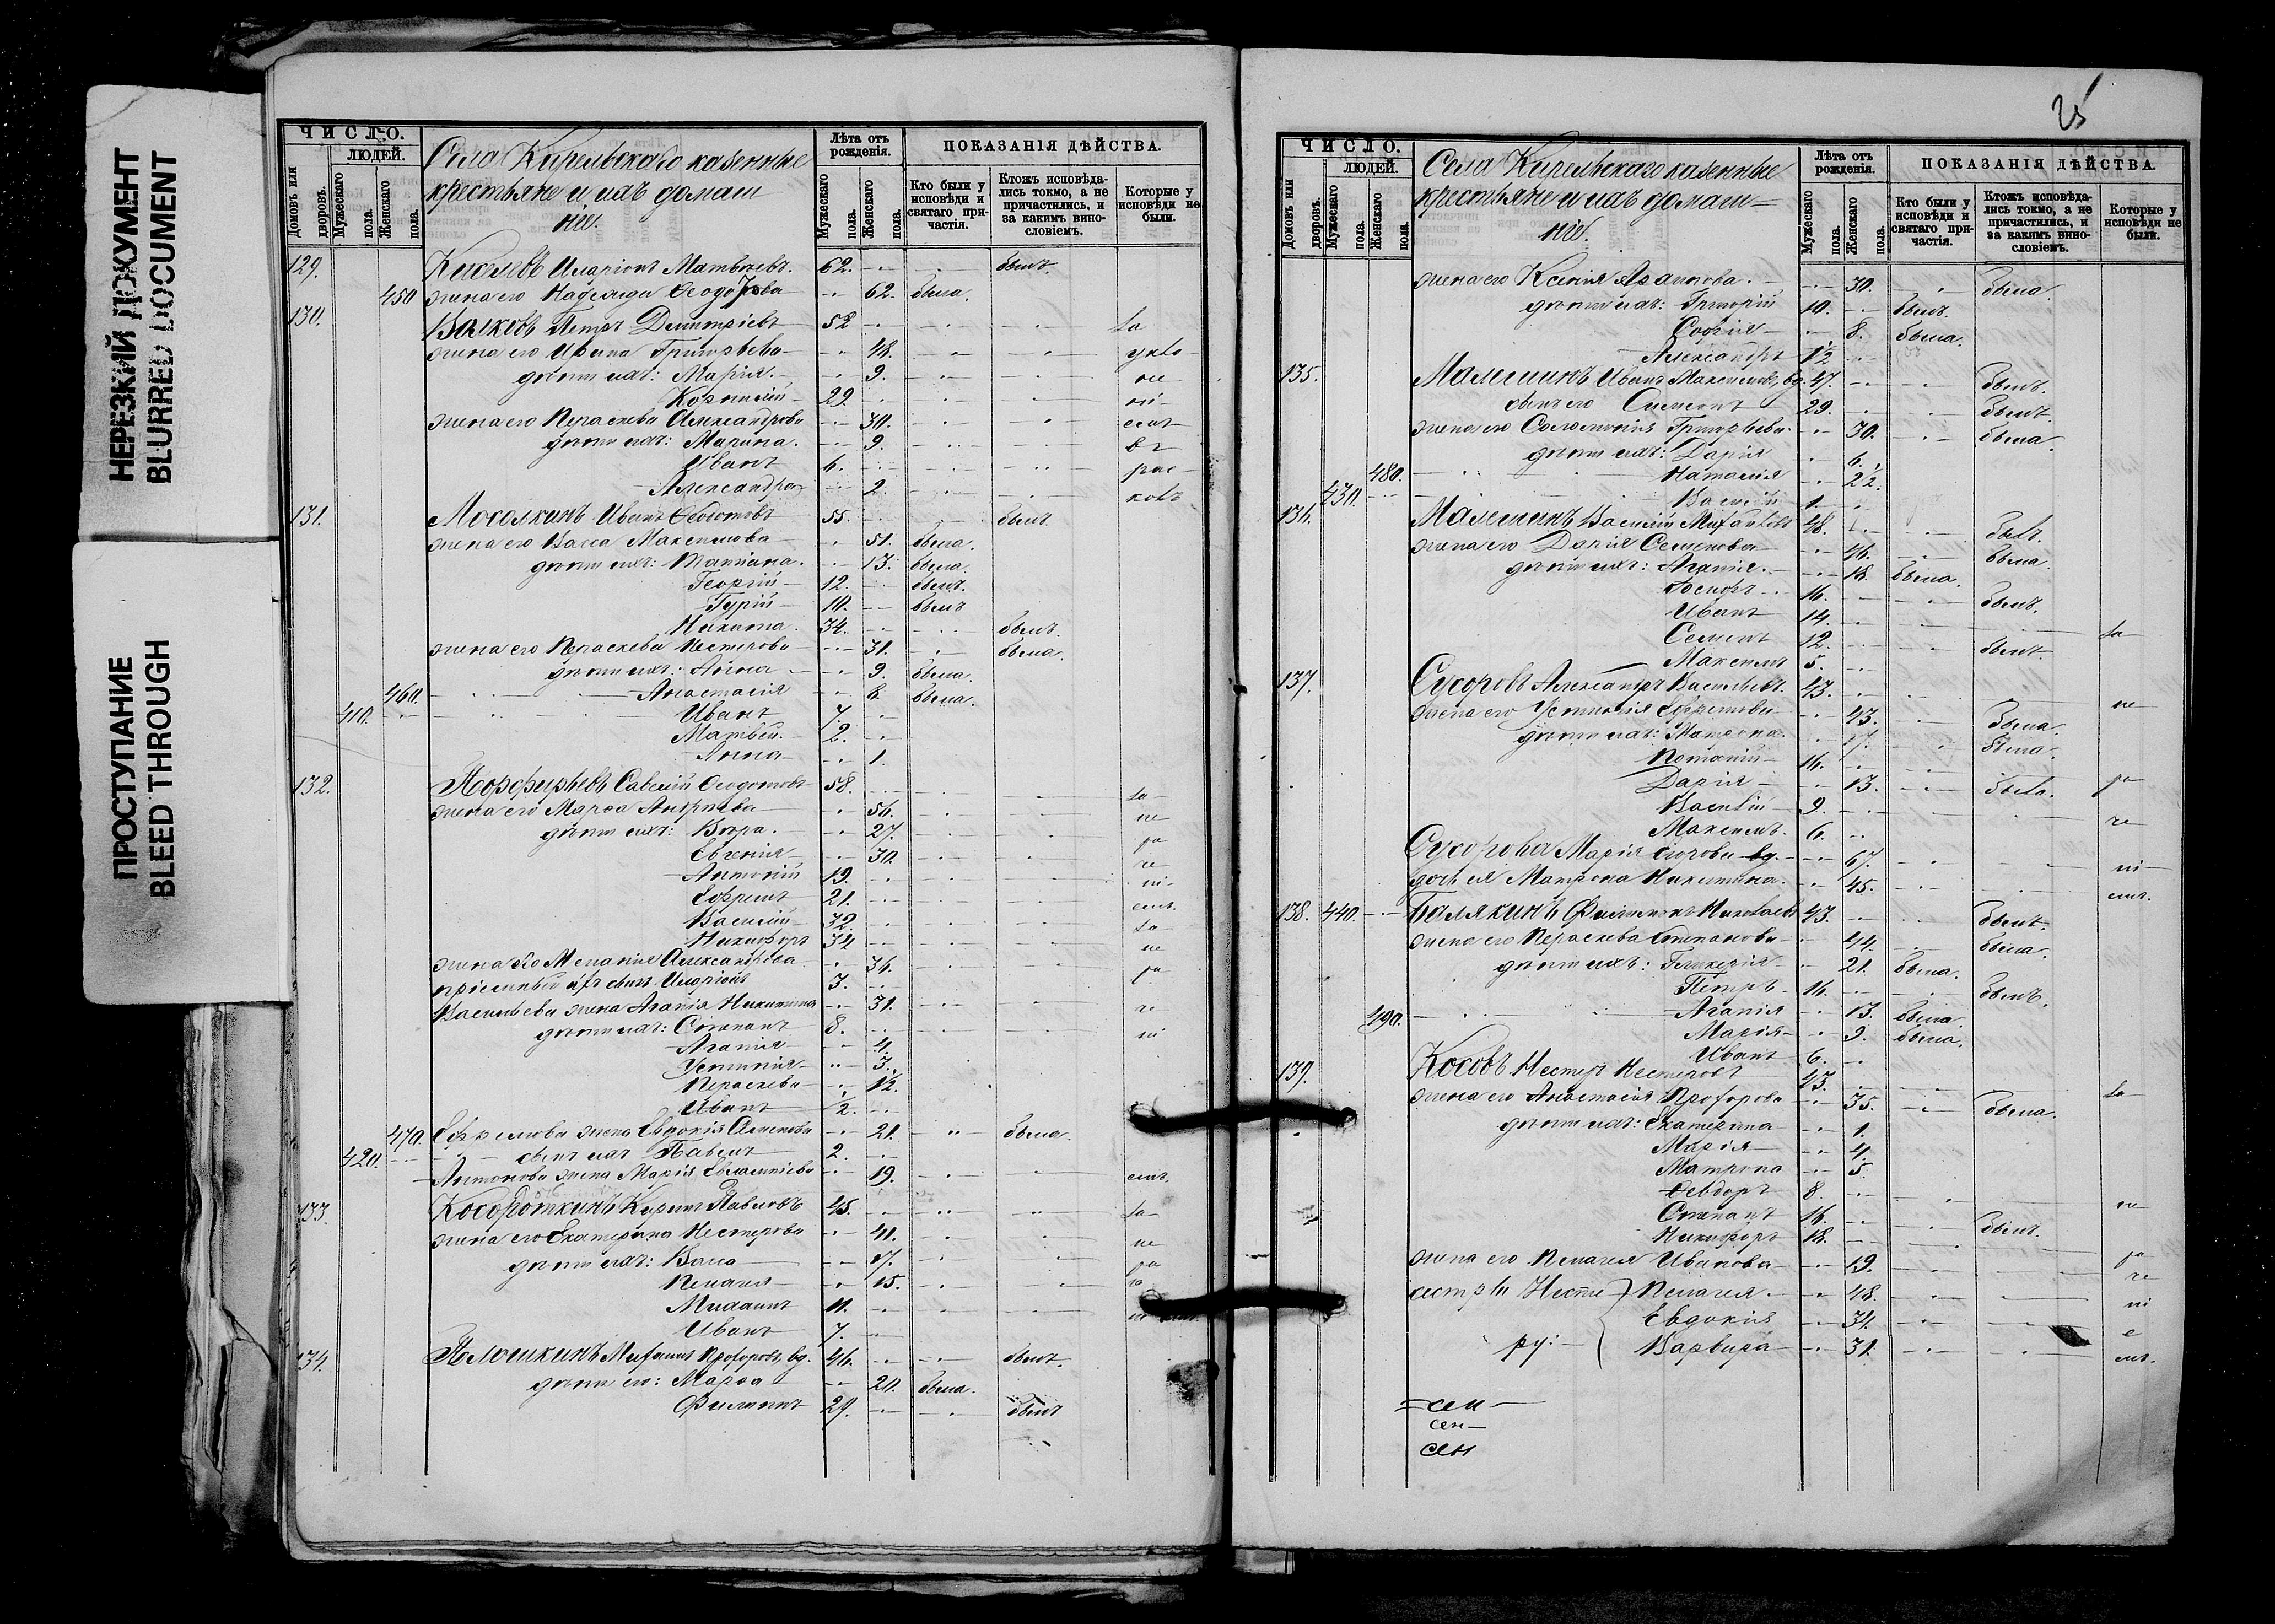 НЕРЕЗКИЙ ДОКУМЕНТ
BLURRED DOCUMENT
ПРОСТУПАНИЕ
BLEED THROUGH
ЧИСЛО.
ЛЮДЕЙ.
Домовъ или дворовъ.
Мужескаго пола.
Женскаго пола.
Села Кирельскаго казенные
крестьяне и ихъ домаш
ніе.
Лѣта отъ рожденія.
Мужескаго пола.
Женскаго пола.
ПОКАЗАНІЯ ДѢЙСТВА.
Кто были у исповѣди и святаго причастія.
Ктожъ исповѣдались токмо, а не причастились, и за какимъ винословіемъ.
Которые у исповѣди не были.
129. Киселевъ Иларіонъ Матвѣевъ. 62. былъ.
450 жена его Надежда Ѳеодорова 62. была.
130. Волковъ Петръ Димитріевъ 52
жена его Ирина Григорьева 48.
дѣти ихъ: Марія. 9.
Корнилій 29.
жена его Параскева Александрова 30.
дѣти ихъ: Марина. 9.
Иванъ 6.
Александра 2.
131. Мосолкинъ Иванъ Ѳедотовъ 55. былъ.
жена его Васса Максимова 51. была.
дѣти ихъ: Татіана. 13. была.
Георгій 12. былъ.
Гурій 10. былъ
Никита. 34. былъ.
жена его Параскева Нестерова 31. была.
дѣти ихъ: Анна 9. была.
460. Анастасія 8. была.
410. Иванъ 7.
Матвѣй. 2.
Анна 1.
132. Порфирьевъ Савелій Ѳеодотовъ 58.
жена его Марѳа Андреева 56.
дѣти ихъ: Вѣра. 27.
Евгенія 30.
Антоній 19.
Ефремъ 21.
Василій 32.
Никифоръ 34
жена его Меланія Александрова 36.
пріемный их сынъ Иларіонъ 3.
Васильева жена Агапія Никитина 31.
дѣти ихъ: Степанъ 8.
Агапія 4.
Устинія 3.
Параскева 1/2.
Иванъ 1/2.
470. Ефремова жена Евдокія 21. была.
420. сынъ ихъ Павелъ 2.
Антонова жена Марія 19.
133. Косороткинъ Киръ Павловъ 45.
жена его Екатерина Нестерова 40.
дѣти ихъ: Васса 17.
Пелагея 15.
Михаилъ 11.
Иванъ 7.
134. Плошкинъ Михаилъ Прохоровъ, вд. 46. былъ.
дѣти его: Марѳа 20. была.
Филиппъ 29. былъ
25
ЧИСЛО.
ЛЮДЕЙ.
Домовъ или дворовъ.
Мужескаго пола.
Женскаго пола.
Села Кирельскаго казенные
крестьяне и ихъ домаш=
ніе.
Лѣта отъ рожденія.
Мужескаго пола.
Женскаго пола.
ПОКАЗАНІЯ ДѢЙСТВА.
Кто были у исповѣди и святаго причастія.
Ктожъ исповѣдались токмо, а не причастились, и за какимъ винословіемъ.
Которые у исповѣди не были.
жена его Ксенія 30. была.
дѣти ихъ: Григорій 10. былъ.
Софія 8. была.
Александръ 1 1/2
135. Малышинъ Иванъ Максимовъ, вд. 47. былъ.
сынъ его Симеонъ 29. былъ.
жена его Соломонія Григорьева. 30. была.
дѣти ихъ: Дарія 6.
480. Наталія 2 1/2.
430. Василій 1.
136. Малышинъ Василій Михайловъ 48. былъ.
жена его Дарія Семенова 46. была.
дѣти ихъ: Агапія. 18. была.
16. былъ.
Иванъ 14.
Семенъ 12. былъ.
Максимъ 5.
137. Сусоровъ Александръ Васильевъ. 43.
жена его Устинія Ефремова 43. была.
дѣти ихъ: Матрона. 17. была.
Потапій 16.
Дарія 13. была.
Василій 9.
Максимъ. 6.
Сусорова Марія вд. 67.
дочь ея Матрона Никитина. 45.
138. 440. Балякинъ Филимонъ Николаевъ 43. былъ.
жена его Параскева Степанова 44. была.
дѣти ихъ: Гликерія 21. была.
Петръ 16. былъ.
490. Агапія 13. была.
Марія 9. была.
Иванъ 6.
139. Косовъ Нестеръ Нестеровъ 43.
жена его Анастасія Прохорова 35. была.
дѣти ихъ: Екатерина 1.
Марія 4.
Матрона 5.
Ѳеодоръ 8.
Степанъ 16.
Никифоръ 18. былъ.
жена его Пелагея Иванова 19.
сестры Несте Пелагея. 48.
Евдокія 34.
ру: Варвара 31.
сен
сен
сен